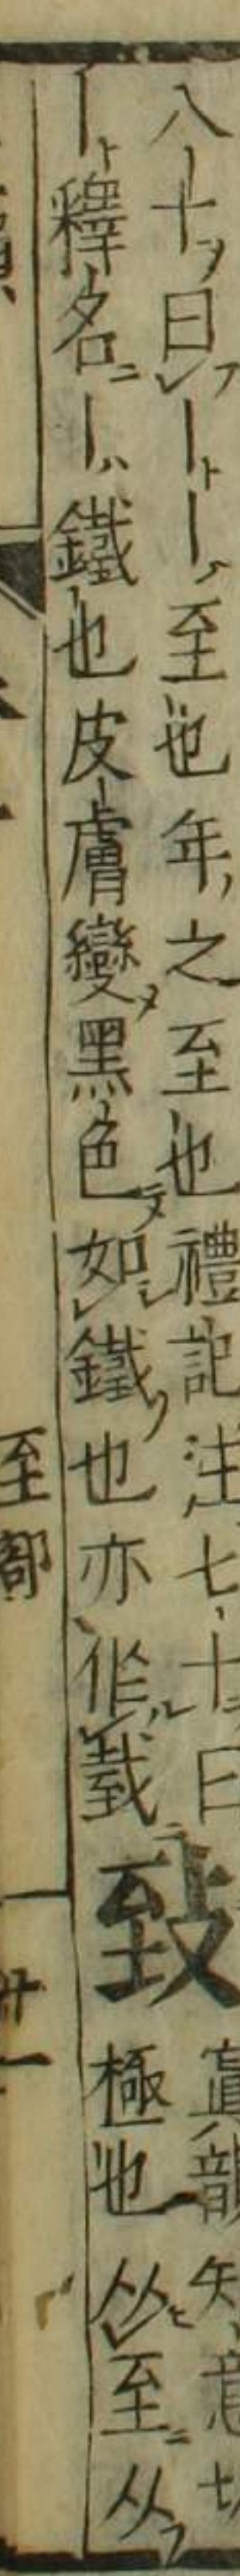 八十ヲ曰フ｜ト｜ハ至也年ノ之至也禮記注七十ニ曰
｜ト釋名ニ｜ハ鐵也皮膚變メ黑色ニテ如シ鐵ノ也亦作ル䥫ニ
致
眞韻矢意切
極也从ヒ至ニ从フ
至部
廿一